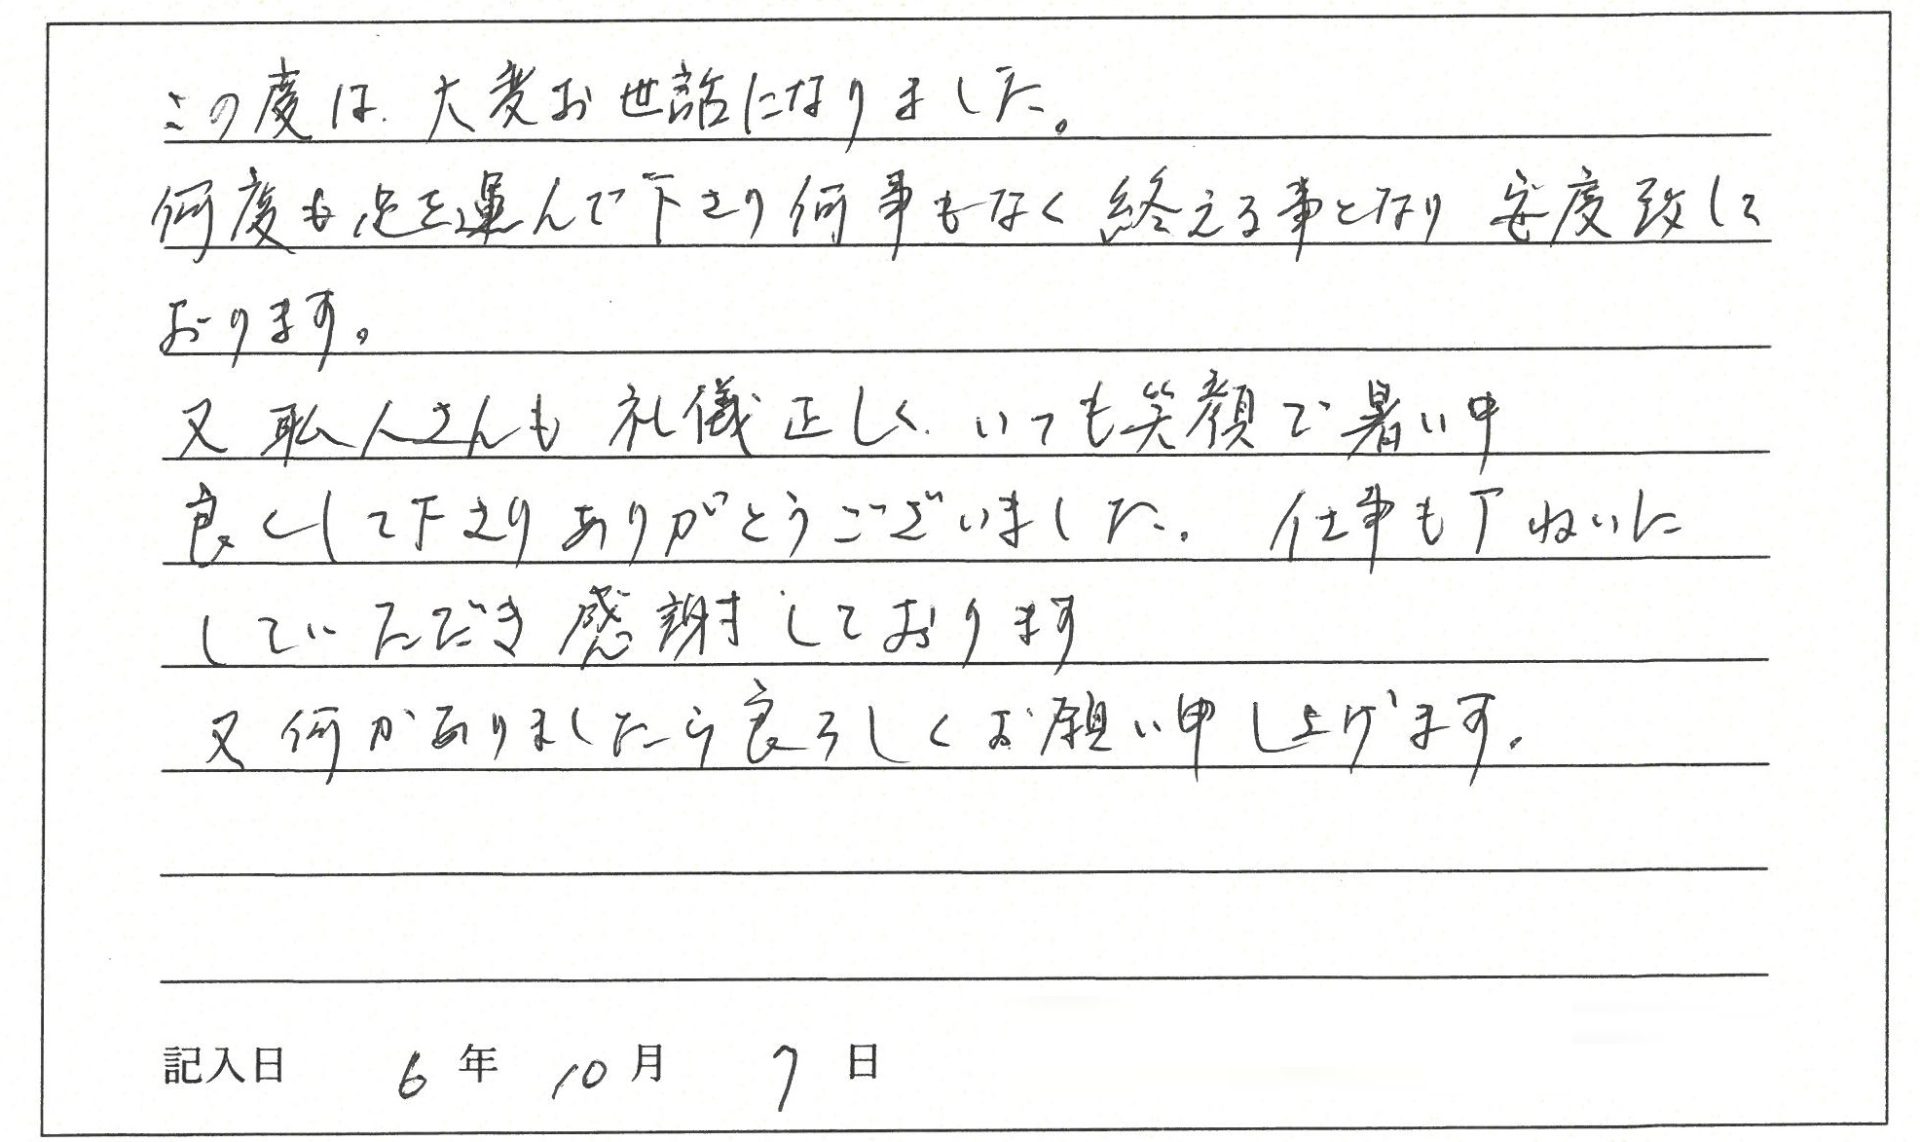 この度は、大変お世話になりました。
何度も足を運んで下さり何事もなく終える事となり安度致して
おります。
又職人さんも礼儀正しく、いつも笑顔で暑い中
良くして下さりありがとうございました。仕事も丁ねいに
していただき感謝しております
又何かありましたら良ろしくお願い申し上げます。
記入日 6年 10月 7日